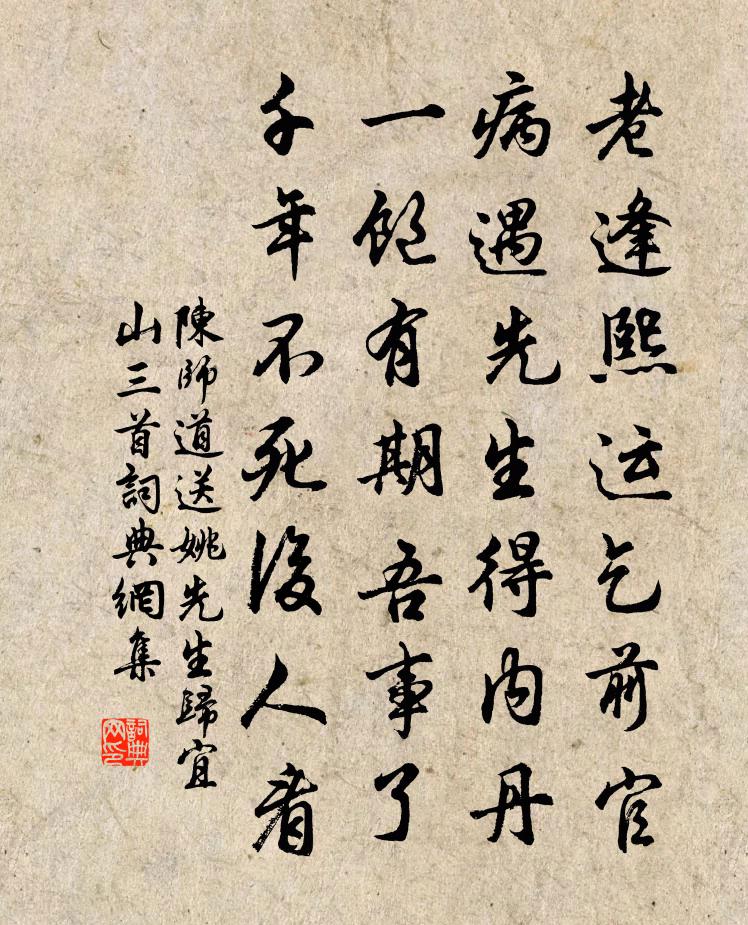 老逢熙运乞前官
病遇先生得内丹
一飽有期吾事了
千年不死後人看
陳師道送姚先生歸宜
山三首詞典網集
詞典
网印